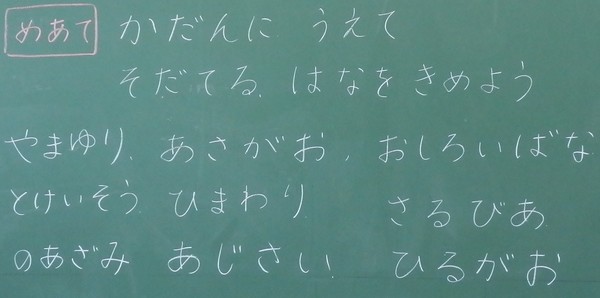 めあて かだんに うえて
そだてる はなを きめよう
やまゆり、あさがお、おしろいばな
とけいそう ひまわり さるびあ
のあざみ あじさい ひるがお